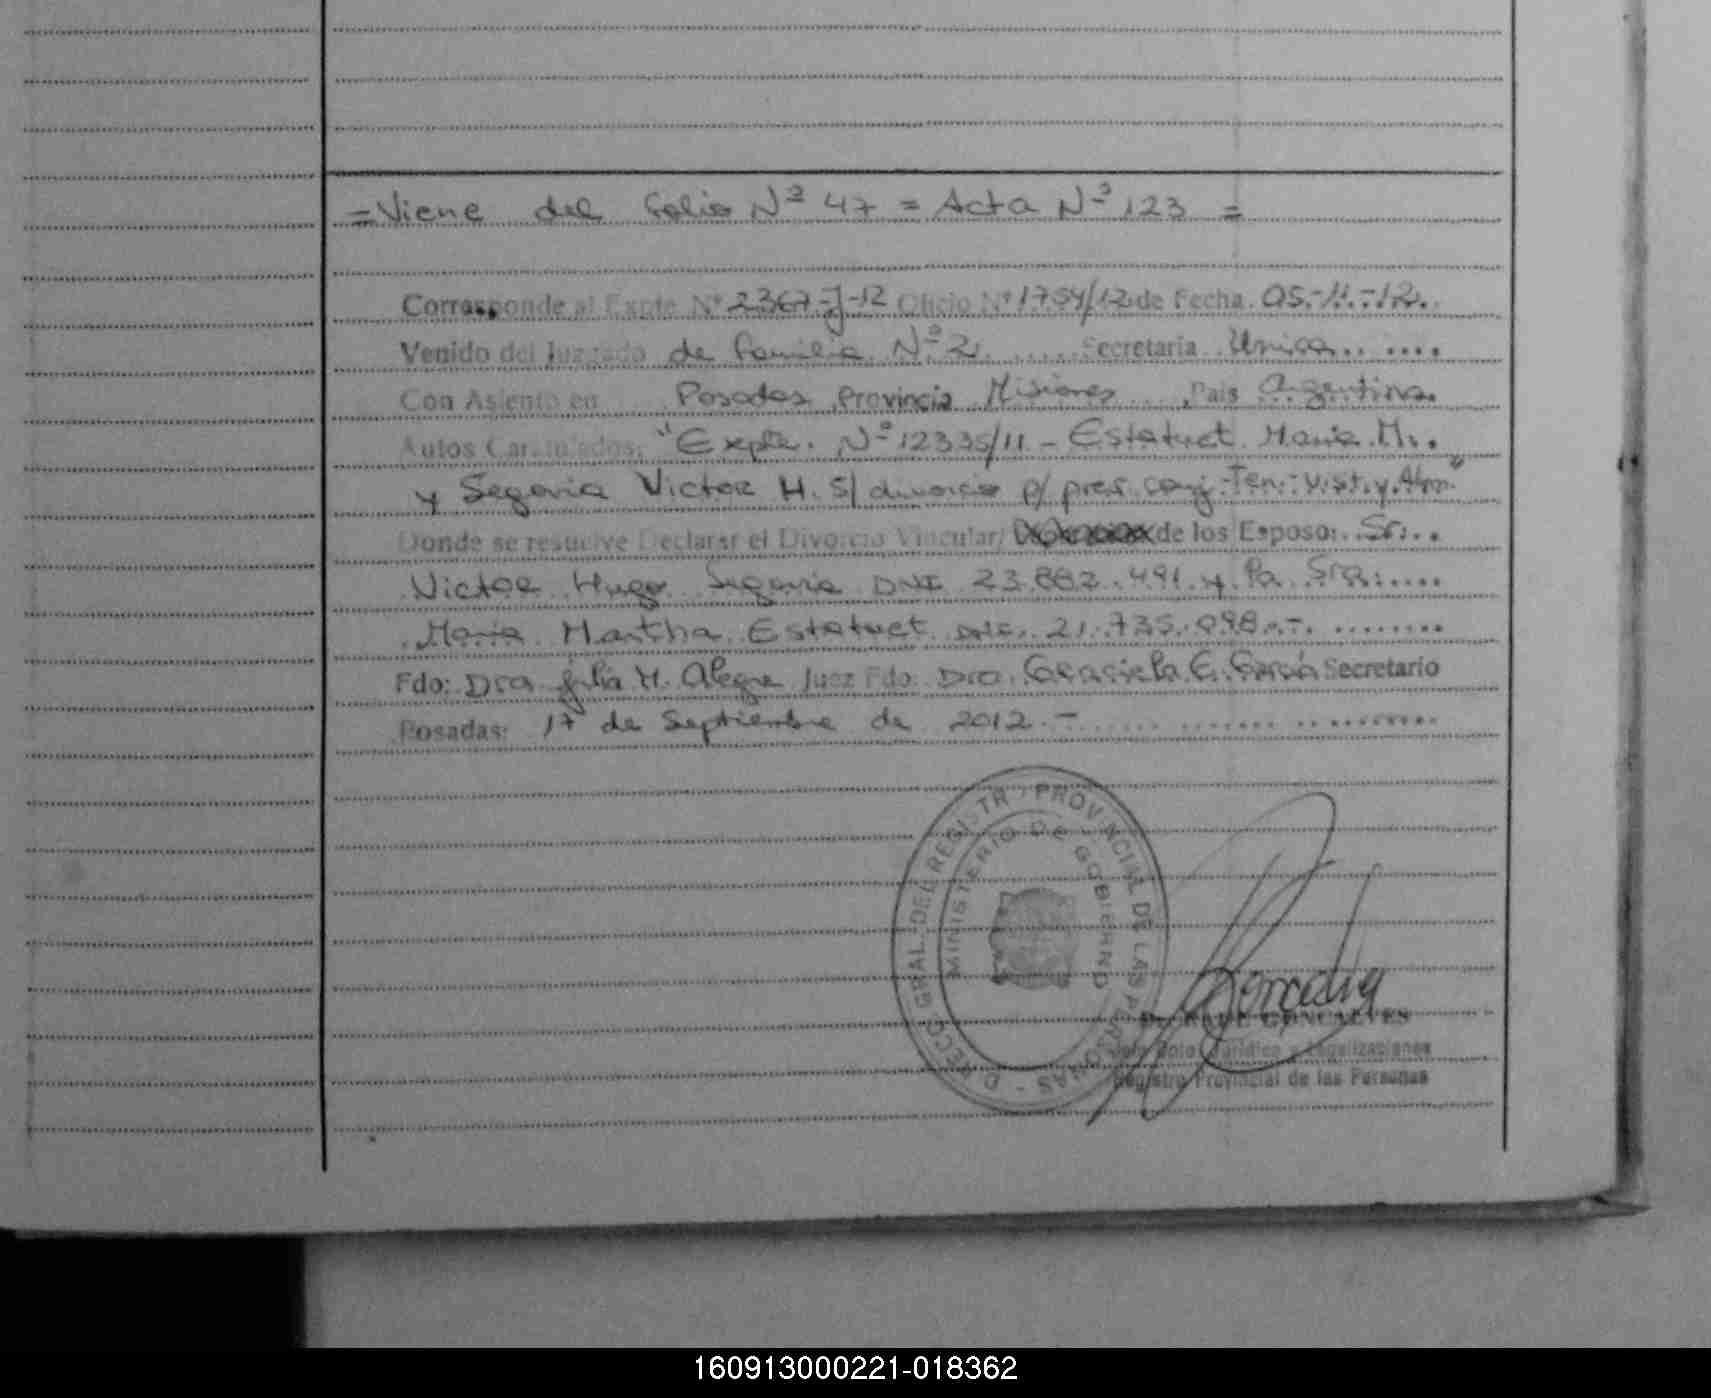 = Viene del folio Nº 47 = Acta Nº 123 =
Corresponde al Expte Nº 2367-J-12 Oficio Nº 1754/12 de Fecha 05-11-12.
Venido del Juzgado de Familia Nº 2 Secretaria Unica
Con Asiento en Posadas Provincia Misiones Pais Argentina
Autos Caratulados: "Expte. Nº 12335/11 - Estatuet Maria M.
y Segovia Victor H. S/ divorcio p/ pres. conj. - Ten. - Vist. y Alim."
Donde se resuelve Declarar el Divorcio Vincular/ de los Esposo: Sr.
Victor Hugo Segovia DNI 23.882.491 y la Sra.
Maria Martha Estatuet DNI. 21.735.098.-
Fdo: Dra Julia M. Alegre Juez Fdo: Dra. Graciela E. García Secretario
Posadas: 17 de Septiembre de 2012.-
DIRECC. GRAL. DEL REGISTRO PROVINCIAL DE LAS PERSONAS -
MINISTERIO DE GOBIERNO
GONCALVES
Jefe Dpto. Jurídico y Legalizaciones
Registro Provincial de las Personas
160913000221-018362